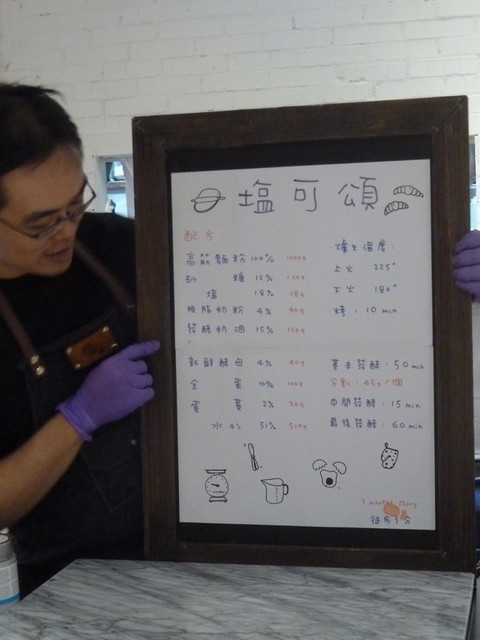 塩可頌
配方
高筋麵粉 100% 1000g
砂糖 12% 120g
塩 1.8% 18g
脫脂奶粉 4% 40g
發酵奶油 15% 150g
新鮮酵母 4% 40g
全蛋 10% 100g
蛋黃 2% 20g
水 4℃ 51% 510g
爐火溫度:
上火 225°
下火 180°
烤: 10 min
基本發酵: 50 min
分割: 45g/個
中間發酵: 15 min
最後發酵: 60 min
3 minutes story